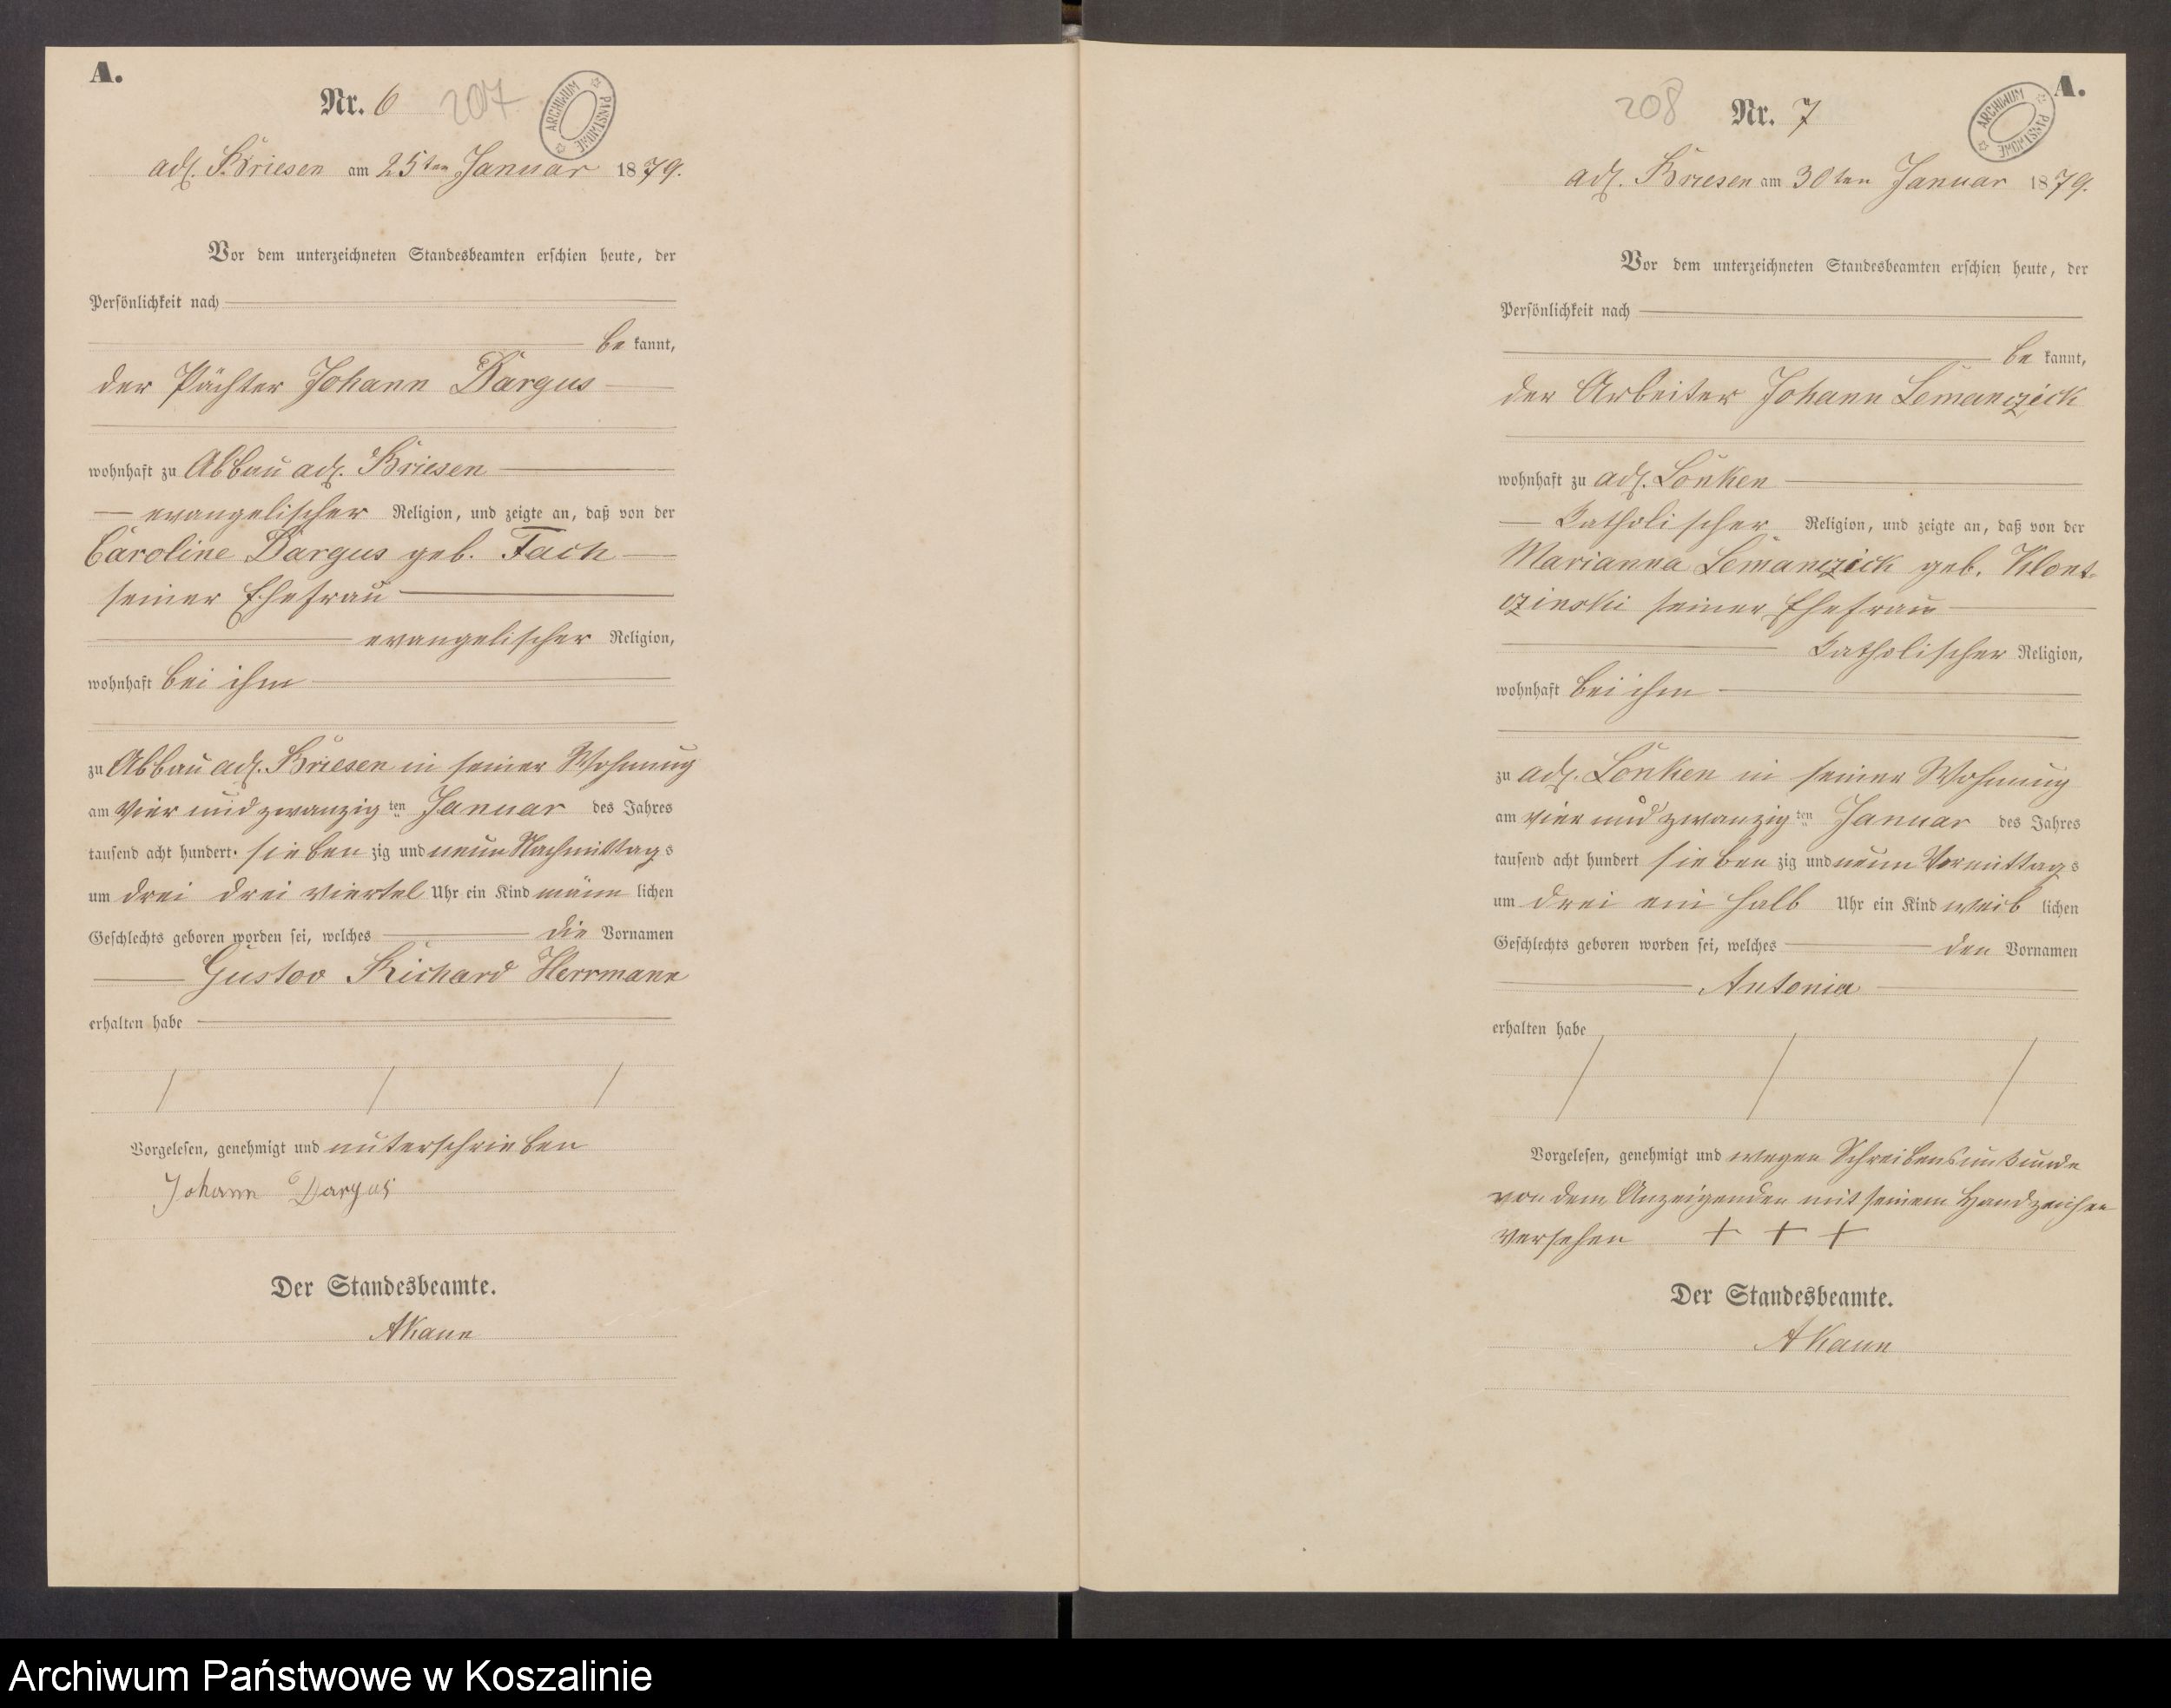 A.
Nr. 6 207
ARCHIWUM PAŃSTWOWE
adl. Briesen am 25ten Januar 1879.
Vor dem unterzeichneten Standesbeamten erschien heute, der
Persönlichkeit nach
be kannt,
der Pächter Johann Dargus
wohnhaft zu Abbau adl. Briesen
evangelischer Religion, und zeigte an, daß von der
Caroline Dargus geb. Fach
seiner Ehefrau
evangelischer Religion,
wohnhaft bei ihm
zu Abbau adl. Briesen in seiner Wohnung
am vier und zwanzig ten Januar des Jahres
tausend acht hundert sieben zig und neun Nachmittags
um drei drei viertel Uhr ein Kind männ lichen
Geschlechts geboren worden sei, welches die Vornamen
Gustav Richard Herrmann
erhalten habe
Vorgelesen, genehmigt und unterschrieben
Johann Dargus
Der Standesbeamte.
AKaun
A.
208 Nr. 7
ARCHIWUM PAŃSTWOWE
adl. Briesen am 30ten Januar 1879.
Vor dem unterzeichneten Standesbeamten erschien heute, der
Persönlichkeit nach
be kannt,
der Arbeiter Johann Lemanczick
wohnhaft zu adl. Lonken
Katholischer Religion, und zeigte an, daß von der
Marianna Lemanczick geb. Klont-
czinski seiner Ehefrau
Katholischer Religion,
wohnhaft bei ihm
zu adl. Lonken in seiner Wohnung
am vier und zwanzig ten Januar des Jahres
tausend acht hundert sieben zig und neun Vormittags
um drei ein halb Uhr ein Kind weib lichen
Geschlechts geboren worden sei, welches den Vornamen
Antonia
erhalten habe
Vorgelesen, genehmigt und wegen Schreibensunkunde
von dem Anzeigenden mit seinem Handzeichen
versehen + + +
Der Standesbeamte.
AKaun
Archiwum Państwowe w Koszalinie